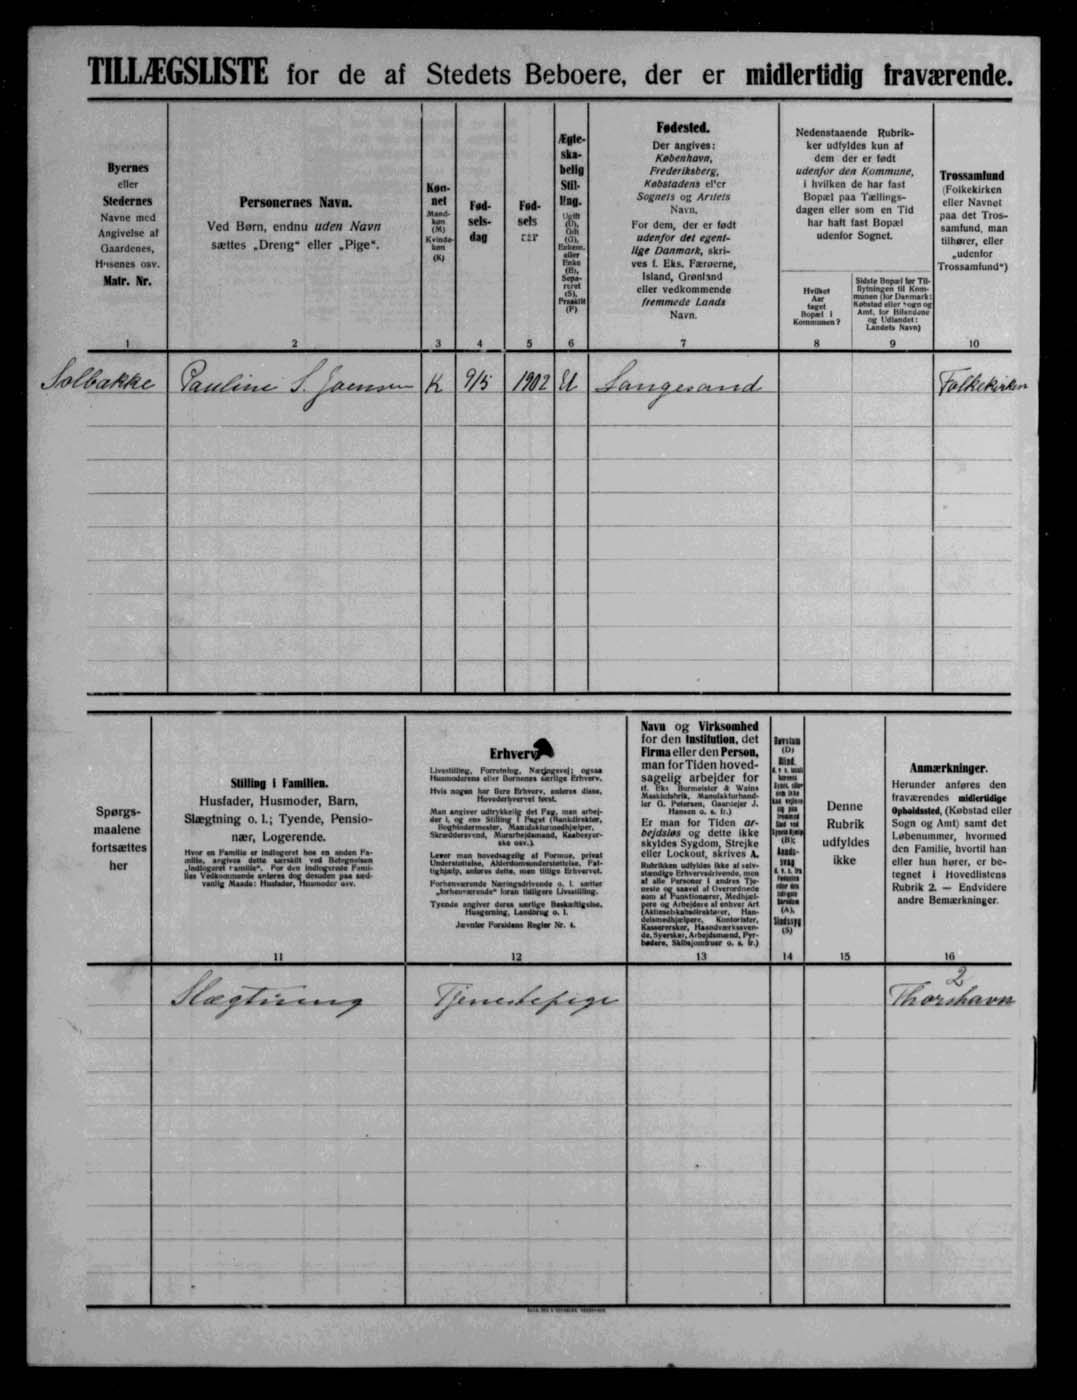 TILLÆGSLISTE for de af Stedets Beboere, der er midlertidig fraværende.
Byernes
eller
Stedernes
Navne med
Angivelse af
Gaardenes,
Husenes osv.
Matr. Nr.
1
Personernes Navn.
Ved Børn, endnu uden Navn
sættes „Dreng“ eller „Pige“.
2
Køn-
net
Mand-
køn
(M)
Kvinde-
køn
(K)
3
Fød-
sels-
dag
4
Fød-
sels
aar
5
Ægte-
ska-
belig
Stil-
ling.
Ugift
(U),
Gift
(G),
Enkem.
eller
Enke
(E),
Sepa-
reret
(S),
Fraskilt
(F)
6
Fødested.
Der angives:
København,
Frederiksberg,
Købstadens eller
Sognets og Amtets
Navn.
For dem, der er født
udenfor det egent-
lige Danmark, skri-
ves f. Eks. Færøerne,
Island, Grønland
eller vedkommende
fremmede Lands
Navn.
7
Nedenstaaende Rubrik-
ker udfyldes kun af
dem der er født
udenfor den Kommune,
i hvilken de har fast
Bopæl paa Tællings-
dagen eller som en Tid
har haft fast Bopæl
udenfor Sognet.
Hvilket
Aar
taget
Bopæl i
Kommunen?
8
Sidste Bopæl før Til-
flytningen til Kom-
munen (for Danmark:
Købstad eller Sogn og
Amt, for Bilandene
og Udlandet:
Landets Navn)
9
Trossamfund
(Folkekirken
eller Navnet
paa det Tros-
samfund, man
tilhører, eller
„udenfor
Trossamfund“)
10
Solbakke Pauline S. Joensen K 9/5 1902 U Sangesand Folkekirken
Spørgs-
maalene
fortsættes
her
Stilling i Familien.
Husfader, Husmoder, Barn,
Slægtning o. l.; Tyende, Pensio-
nær, Logerende.
Hvor en Familie er indlogeret hos en anden Fa-
milie, angives dette særskilt ved Betegnelsen
„indlogeret Familie“. For den indlogerede Fami-
lies Vedkommende anføres dog desuden paa sæd-
vanlig Maade: Husfader, Husmoder osv.
11
Erhverv
Livsstilling, Forretning, Næringsvej; ogsaa
Husmoderens eller Børnenes særlige Erhverv.
Hvis nogen har flere Erhverv, anføres disse,
Hovederhvervet først.
Man angiver udtrykkelig det Fag, man arbej-
der i, og ens Stilling i Faget (Bankdirektør,
Bogbindermester, Manufakturmedhjælper,
Skræddersvend, Murarbejdsmand, Kaabesyer-
ske osv.).
Lever man hovedsagelig af Formue, privat
Understøttelse, Alderdomsunderstøttelse, Fat-
tighjælp, anføres dette, men tillige Erhvervet.
Forhenværende Næringsdrivende o. l. sætter
„forhenværende“ foran tidligere Livsstilling.
Tyende angiver deres særlige Beskæftigelse,
Husgerning, Landbrug o. l.
Jævnfør Forsidens Regler Nr. 4.
12
Navn og Virksomhed
for den Institution, det
Firma eller den Person,
man for Tiden hoved-
sagelig arbejder for
(f. Eks Burmeister & Wains
Maskinfabrik, Manufakturhand-
ler G. Petersen, Gaardejer J.
Hansen o. s. fr.)
Er man for Tiden ar-
bejdsløs og dette ikke
skyldes Sygdom, Strejke
eller Lockout, skrives A.
Rubrikken udfyldes ikke af selv-
stændige Erhvervsdrivende, men
af alle Personer i andres Tje-
neste og saavel af Overordnede
som af Funktionærer, Medhjæl-
pere og Arbejdere af enhver Art
(Aktieselskabsdirektører, Han-
delsmedhjælpere, Kontorister,
Kassererske, Haandværkssven-
de, Syersker, Arbejdsmænd, Fyr-
bødere, Skibsjomfruer o. s. fr.)
13
Døvstum
(D)
Blind,
(B);
Aands-
svag
(A),
Sindssyg
(S)
14
Denne
Rubrik
udfyldes
ikke
15
Anmærkninger.
Herunder anføres den
fraværendes midlertidige
Opholdssted, (Købstad eller
Sogn og Amt) samt det
Løbenummer, hvormed
den Familie, hvortil han
eller hun hører, er be-
tegnet i Hovedlistens
Rubrik 2. — Endvidere
andre Bemærkninger.
16
2
Slægtning Tjenestepige Thorshavn